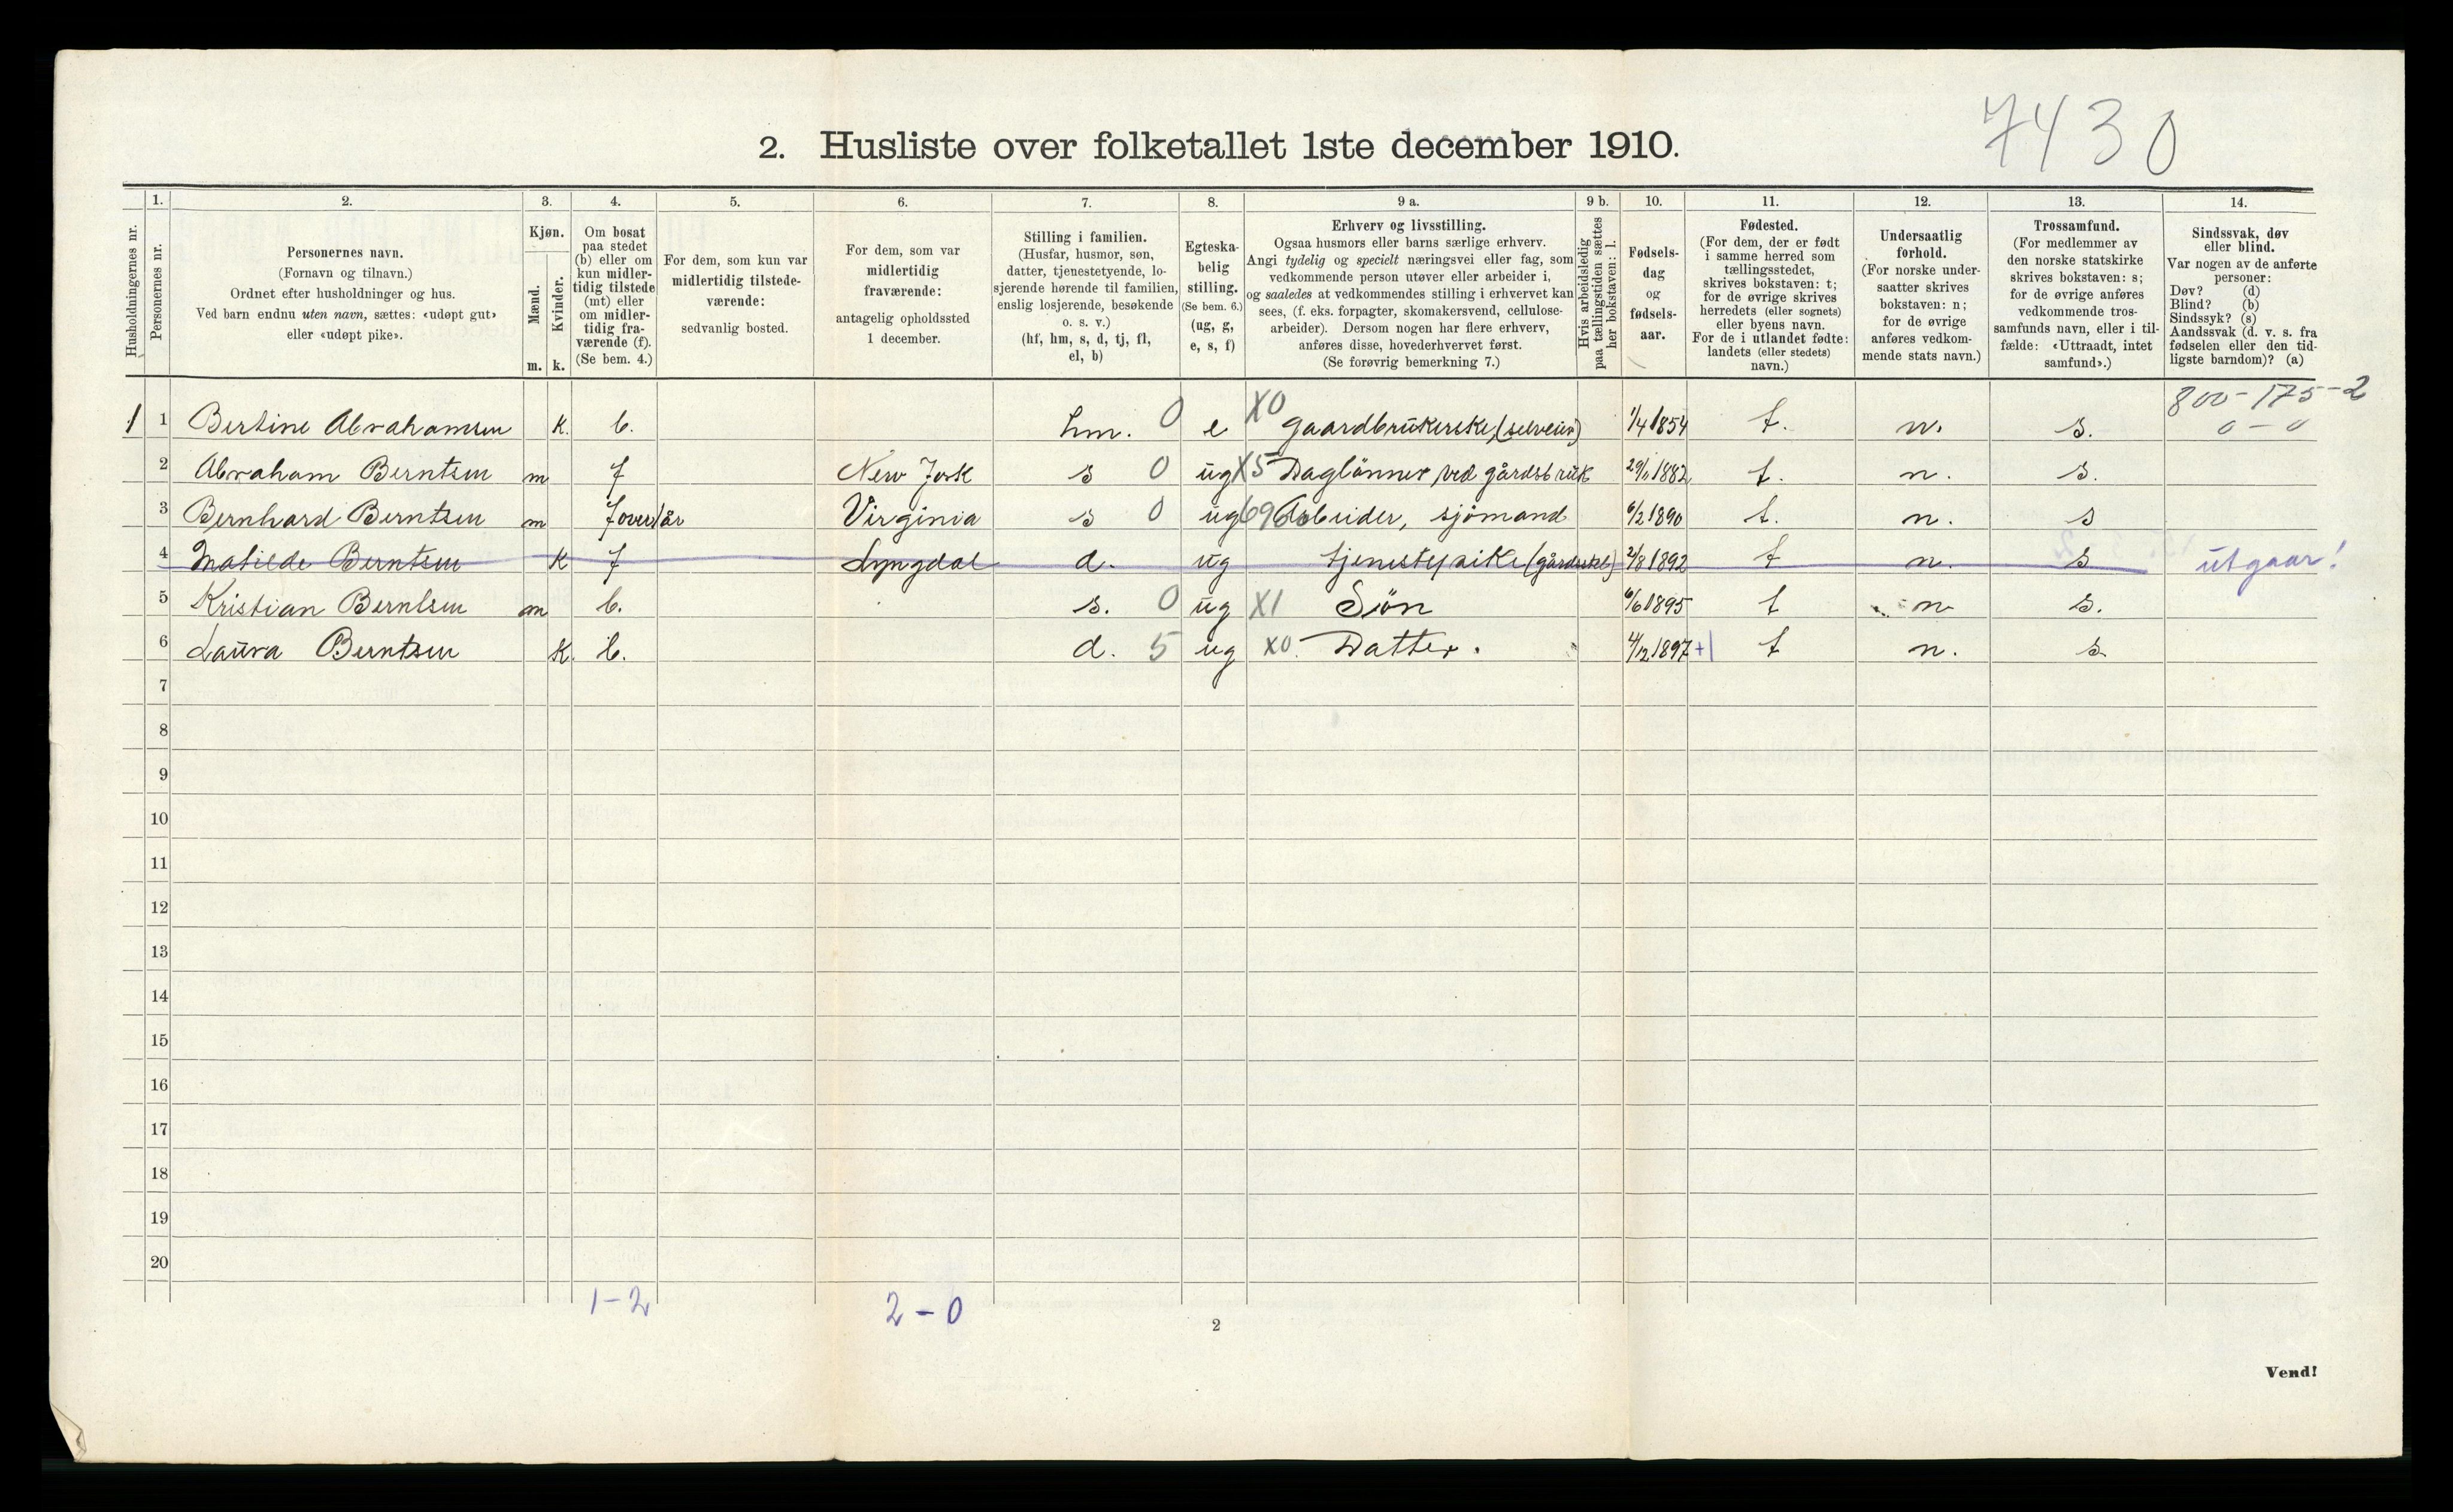 7430
2. Husliste over folketallet 1ste december 1910.
Husholdningernes nr.
1.
Personernes nr.
2.
Personernes navn.
(Fornavn og tilnavn.)
Ordnet efter husholdninger og hus.
Ved barn endnu uten navn, sættes: «udøpt gut»
eller «udøpt pike».
3.
Kjøn.
Mænd.
Kvinder.
m. k.
4.
Om bosat
paa stedet
(b) eller om
kun midler-
tidig tilstede
(mt) eller
om midler-
tidig fra-
værende (f).
(Se bem. 4.)
5.
For dem, som kun var
midlertidig tilstede-
værende:
sedvanlig bosted.
6.
For dem, som var
midlertidig
fraværende:
antagelig opholdssted
1 december.
7.
Stilling i familien.
(Husfar, husmor, søn,
datter, tjenestetyende, lo-
sjerende hørende til familien,
enslig losjerende, besøkende
o. s. v.)
(hf, hm, s, d, tj, fl,
el, b)
8.
Egteska-
belig
stilling.
(Se bem. 6.)
(ug, g,
e, s, f)
9 a.
Erhverv og livsstilling.
Ogsaa husmors eller barns særlige erhverv.
Angi tydelig og specielt næringsvei eller fag, som
vedkommende person utøver eller arbeider i,
og saaledes at vedkommendes stilling i erhvervet kan
sees, (f. eks. forpagter, skomakersvend, cellulose-
arbeider). Dersom nogen har flere erhverv,
anføres disse, hovederhvervet først.
(Se forøvrig bemerkning 7.)
9 b.
Hvis arbeidsledig
paa tællingstiden sættes
her bokstaven: l.
10.
Fødsels-
dag
og
fødsels-
aar.
11.
Fødested.
(For dem, der er født
i samme herred som
tællingsstedet,
skrives bokstaven: t;
for de øvrige skrives
herredets (eller sognets)
eller byens navn.
For de i utlandet fødte:
landets (eller stedets)
navn.)
12.
Undersaatlig
forhold.
(For norske under-
saatter skrives
bokstaven: n;
for de øvrige
anføres vedkom-
mende stats navn.)
13.
Trossamfund.
(For medlemmer av
den norske statskirke
skrives bokstaven: s;
for de øvrige anføres
vedkommende tros-
samfunds navn, eller i til-
fælde: «Uttraadt, intet
samfund».)
14.
Sindssvak, døv
eller blind.
Var nogen av de anførte
personer:
Døv? (d)
Blind? (b)
Sindssyk? (s)
Aandssvak (d. v. s. fra
fødselen eller den tid-
ligste barndom)? (a)
800-175-2
1 1 Bertine Abrahamsen K. b. hm. 0 e X0 Gaardbrukerske (selveier) 1/4 1854 t. n. s. 0-0
2 Abraham Berntsen m f New York s 0 ug X5 Daglönner ved gårdsbruk 29/11 1882 t. n. s.
3 Bernhard Berntsen m f over 1 år Virginia s 0 ug Arbeider, sjömand 6/2 1890 t. n. s
4 Matilde Berntsen K f Lyngdal d. ug tjenestepike (gårdsstel) 2/8 1892 t n. s utgaar!
5 Kristian Berntsen m b. s. 0 ug X1 Sön 6/6 1895 t n s.
6 Laura Berntsen K. b. d. 5 ug X0. Datter. 4/12 1897 +1 t n. s.
7
8
9
10
11
12
13
14
15
16
17
18
19
20
1-2
2-0
2
Vend!